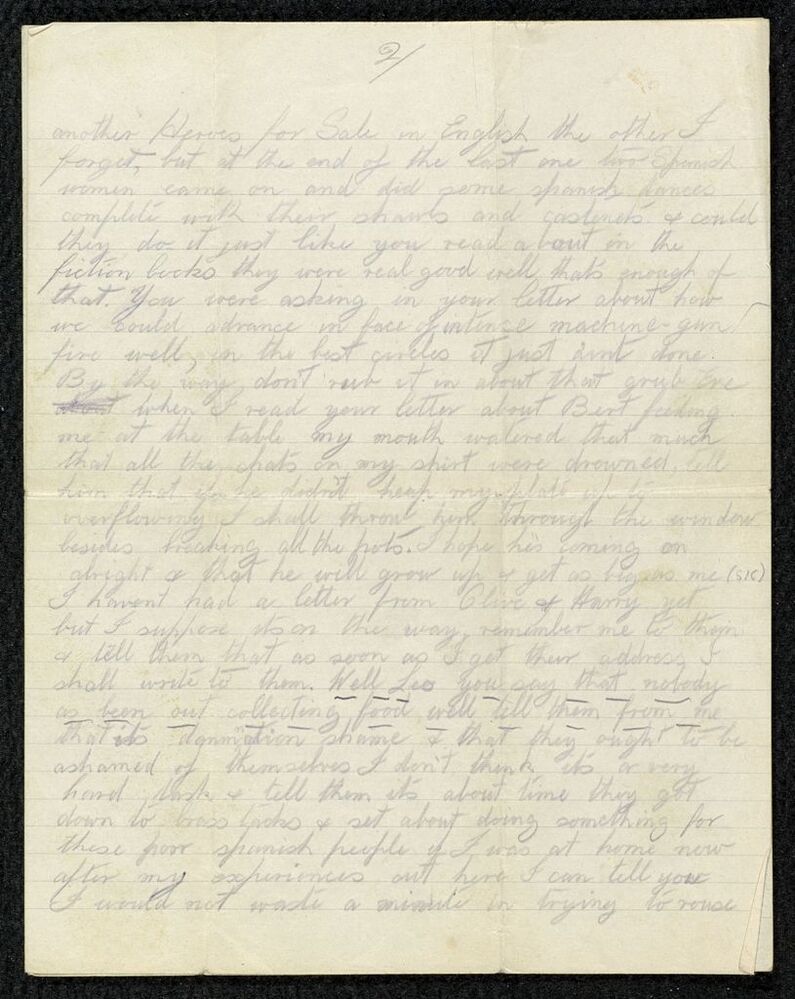 2/
another Heroes for Sale in English the other I
forget, but at the end of the last one two Spanish
women came on and did some spanish dances
complete with their shawls and castenets & could
they do it just like you read about in the
fiction books they were real good well that's enough of
that. You were asking in your letter about how
we could advance in face of intense machine-gun
fire well, in the best circles it just aint done.
By the way dont rub it in about that grub Eve
when I read your letter about Bert feeding
me at the table my mouth watered that much
that all the chats on my shirt were drowned, tell
him that if he didn't heap my plate up to
overflowing I shall throw him through the window
besides breaking all the pots. I hope he's coming on
alright & that he will grow up & get as big as me (sic)
I havent had a letter from Clive & Harry yet
but I suppose its on the way, remember me to them
& tell them that as soon as I get their address I
shall write to them. Well Leo you say that nobody
as been out collecting food well tell them from me
that its damnation shame & that they ought to be
ashamed of themselves I don't think its a very
hard task & tell them its about time they got
down to brass tacks & set about doing something for
these poor spanish people if I was at home now
after my experiences out here I can tell you
I would not waste a minute in trying to rouse